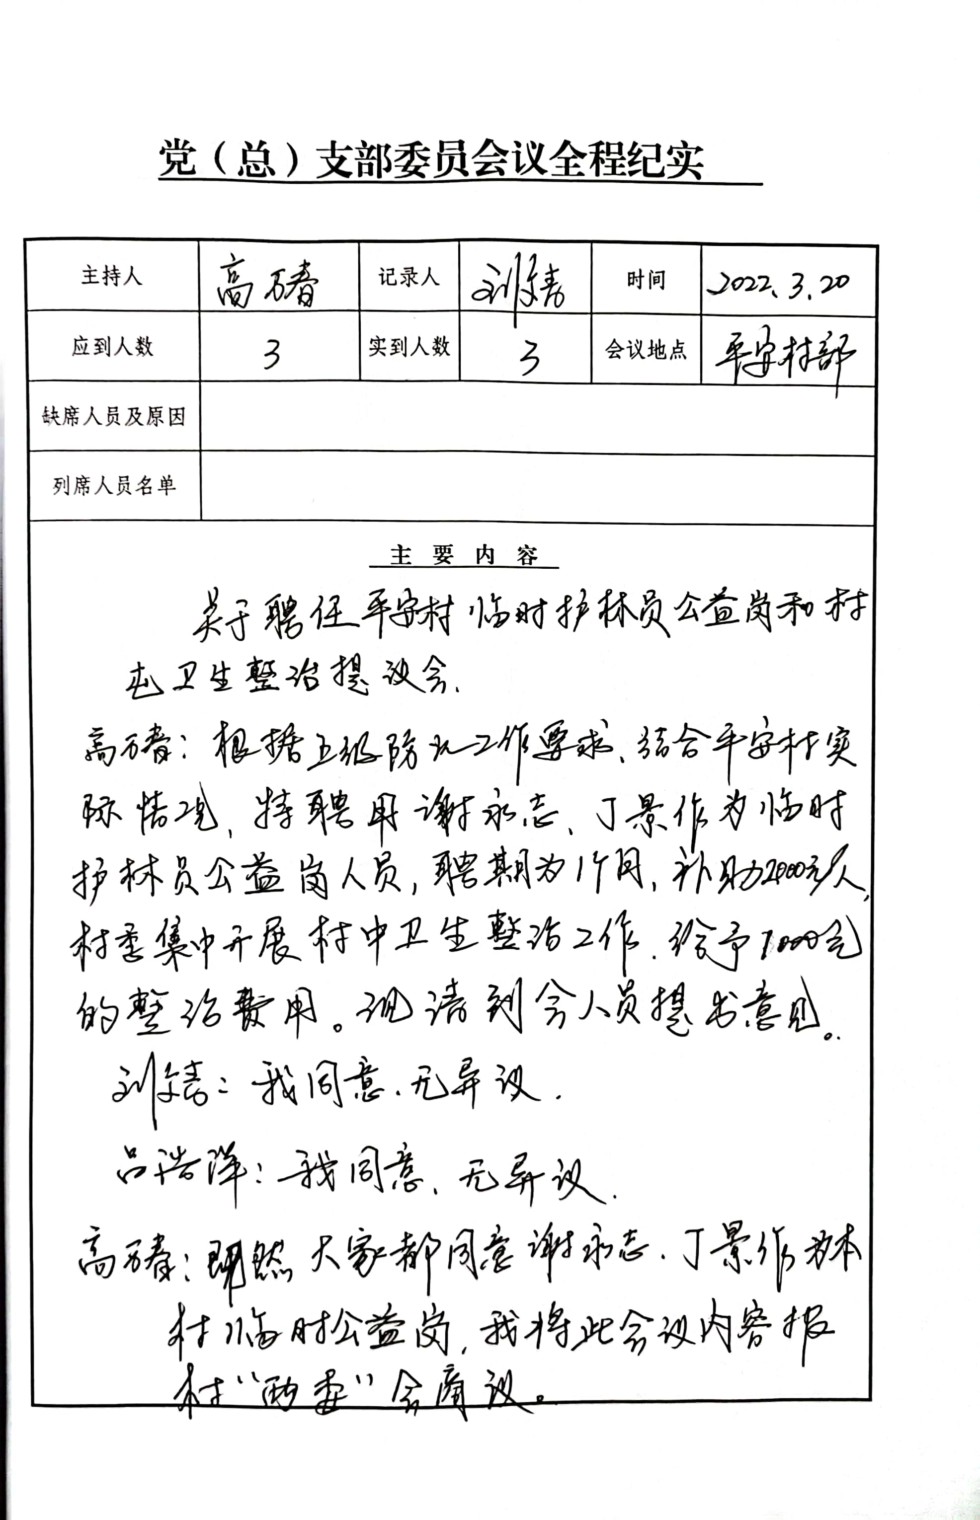 党（总）支部委员会议全程纪实
主持人 高万春 记录人 刘靖 时间 2022.3.20
应到人数 3 实到人数 3 会议地点 平安村部
缺席人员及原因
列席人员名单
主要内容
关于聘任平安村临时护林员公益岗和村
屯卫生整治提议会.
高万春：根据上级防火工作要求、结合平安村实
际情况，特聘用谢永志、丁景作为临时
护林员公益岗人员，聘期为1个月，补助2000元/人，
村委集中开展村中卫生整治工作.给予1000元
的整治费用。现请到会人员提出意见。
刘靖：我同意.无异议.
吕浩洋：我同意、无异议.
高万春：既然大家都同意谢永志.丁景作为本
村临时公益岗，我将此会议内容报
村“两委”会商议。